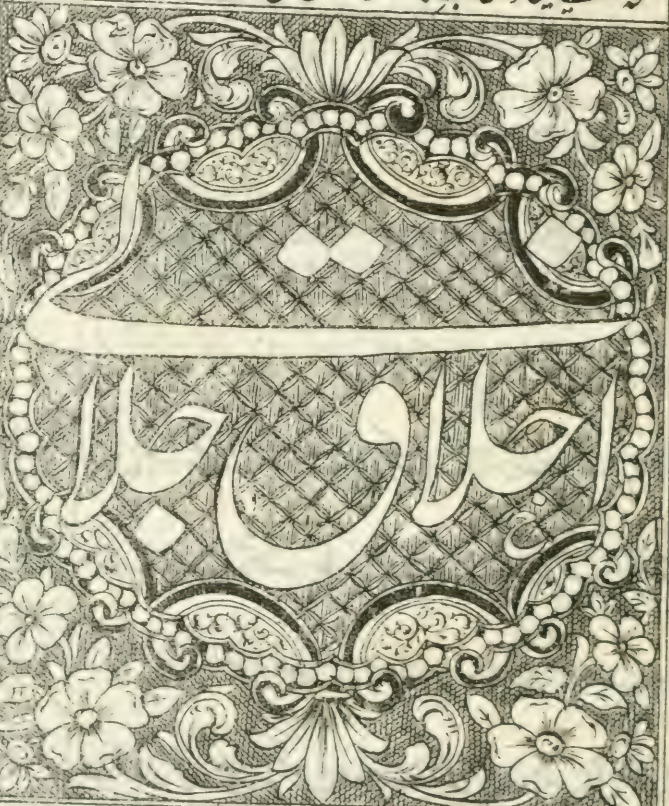 اخلاق جلالی